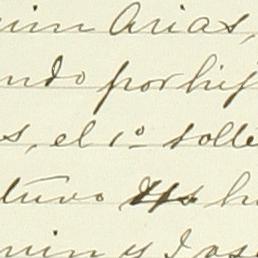 uin Arias,
ndo por hij
s, el 1º solte
tuvo h
min y Jos